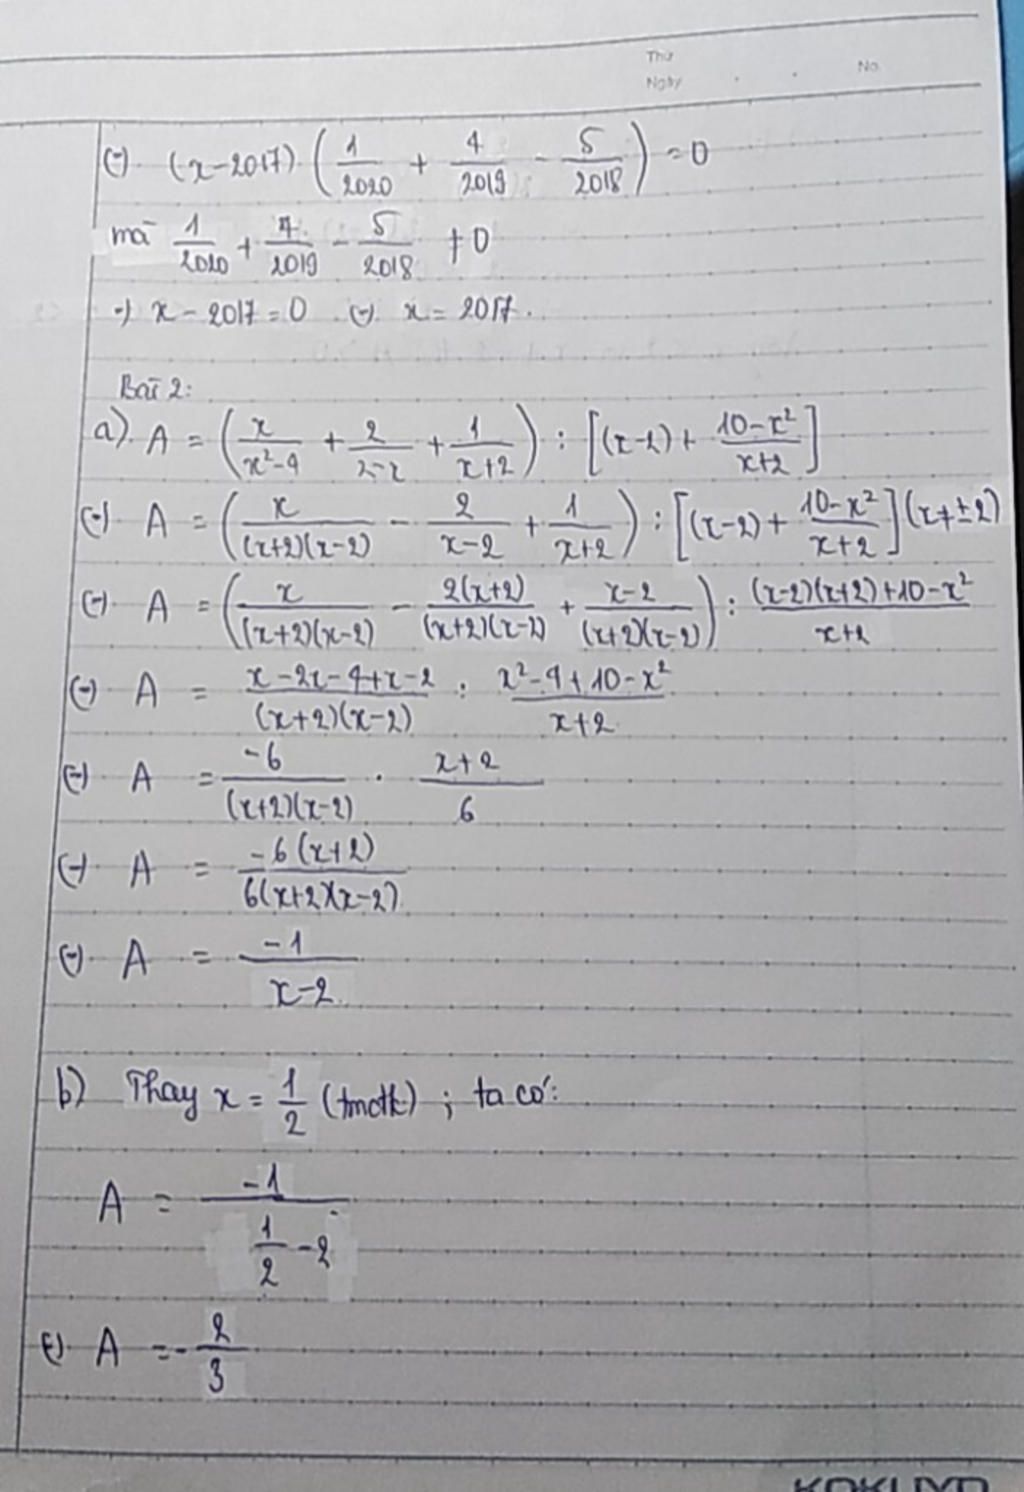 Thứ
Ngày . . No.
(=) (x-2017) · (1/2020 + 4/2019 - 5/2018) = 0
mà 1/2020 + 4/2019 - 5/2018 ≠ 0
=) x - 2017 = 0 (=) x = 2017.
Bài 2:
a). A = (x/(x²-4) + 2/(2-x) + 1/(x+2)) : [(x-2) + (10-x²)/(x+2)]
(=) A = (x/((x+2)(x-2)) - 2/(x-2) + 1/(x+2)) : [(x-2) + (10-x²)/(x+2)] (x≠±2)
(=) A = (x/((x+2)(x-2)) - 2(x+2)/((x+2)(x-2)) + (x-2)/((x+2)(x-2))) : ((x-2)(x+2)+10-x²)/(x+2)
(=) A = (x-2x-4+x-2)/((x+2)(x-2)) : (x²-4+10-x²)/(x+2)
(=) A = -6/((x+2)(x-2)) · (x+2)/6
(=) A = -6(x+2)/(6(x+2)(x-2))
(=) A = -1/(x-2)
b) Thay x = 1/2 (tmđk) ; ta có:
A = -1/(1/2 - 2)
(=) A = -2/3
KOKUYO